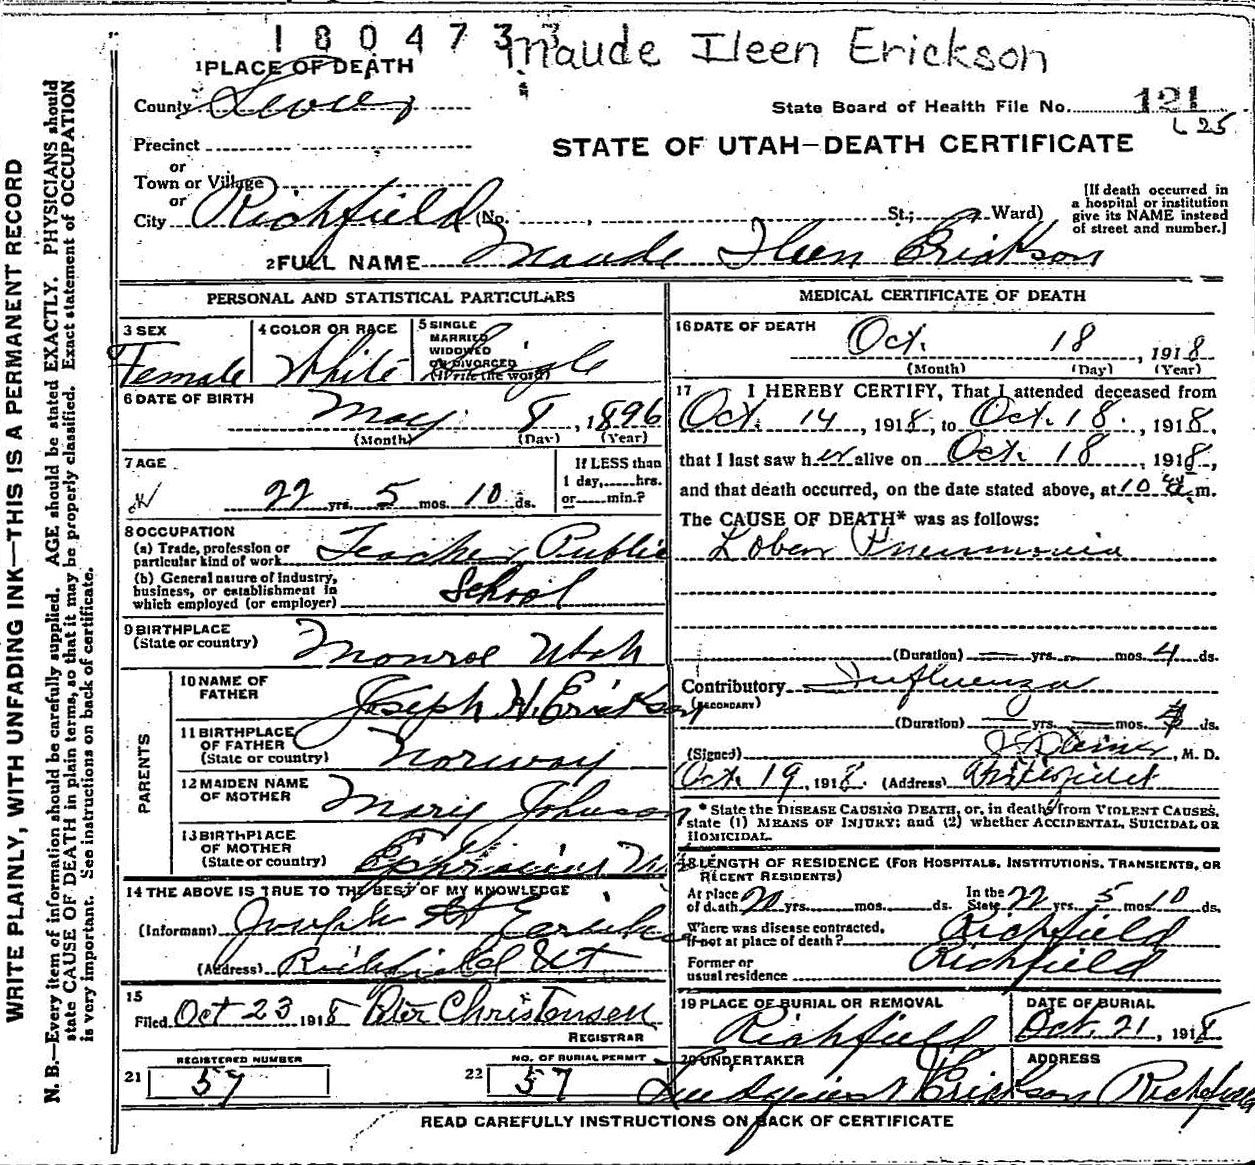 1804733 Maude Ileen Erickson
1 PLACE OF DEATH
County Sevier
State Board of Health File No. 121
25
Precinct
or
Town or Village
or
City Richfield (No. , St.; Ward)
STATE OF UTAH—DEATH CERTIFICATE
[If death occurred in
a hospital or institution
give its NAME instead
of street and number.]
2 FULL NAME Maude Ileen Erickson
PERSONAL AND STATISTICAL PARTICULARS
3 SEX
Female
4 COLOR OR RACE
White
5 SINGLE
MARRIED
WIDOWED
OR DIVORCED
(Write the word)
Single
6 DATE OF BIRTH
May 8, 1896
(Month) (Day) (Year)
7 AGE
22 yrs. 5 mos. 10 ds.
If LESS than
1 day, hrs.
or min.?
8 OCCUPATION
(a) Trade, profession or
particular kind of work Teacher Public
(b) General nature of industry,
business, or establishment in
which employed (or employer) School
9 BIRTHPLACE
(State or country) Monroe Utah
PARENTS
10 NAME OF
FATHER Joseph H. Erickson
11 BIRTHPLACE
OF FATHER
(State or country) Norway
12 MAIDEN NAME
OF MOTHER Mary Johnson
13 BIRTHPLACE
OF MOTHER
(State or country)
14 THE ABOVE IS TRUE TO THE BEST OF MY KNOWLEDGE
(Informant) Joseph H
(Address) Richfield Ut
15
Filed Oct 23 1918 Peter Christensen
REGISTRAR
21 REGISTERED NUMBER
57
22 NO. OF BURIAL PERMIT
57
MEDICAL CERTIFICATE OF DEATH
16 DATE OF DEATH
Oct. 18, 1918
(Month) (Day) (Year)
17 I HEREBY CERTIFY, That I attended deceased from
Oct. 14, 1918, to Oct. 18, 1918,
that I last saw her alive on Oct. 18, 1918,
and that death occurred, on the date stated above, at 10 a m.
The CAUSE OF DEATH* was as follows:
Lobar Pneumonia
(Duration) yrs. mos. 4 ds.
Contributory Influenza
(SECONDARY)
(Duration) yrs. mos. ds.
(Signed) , M. D.
Oct. 19, 1918. (Address)
* State the DISEASE CAUSING DEATH, or, in deaths from VIOLENT CAUSES,
state (1) MEANS OF INJURY; and (2) whether ACCIDENTAL, SUICIDAL OR
HOMICIDAL.
18 LENGTH OF RESIDENCE (FOR HOSPITALS, INSTITUTIONS, TRANSIENTS, OR
RECENT RESIDENTS)
At place
of death 20 yrs. mos. ds.
In the
State 22 5 mos 10 ds.
Where was disease contracted,
if not at place of death? Richfield
Former or
usual residence Richfield
19 PLACE OF BURIAL OR REMOVAL
Richfield
DATE OF BURIAL
Oct. 21, 1918
20 UNDERTAKER
Erickson
ADDRESS
Richfield
READ CAREFULLY INSTRUCTIONS ON BACK OF CERTIFICATE
WRITE PLAINLY, WITH UNFADING INK—THIS IS A PERMANENT RECORD
N. B.—Every item of information should be carefully supplied. AGE should be stated EXACTLY. PHYSICIANS should
state CAUSE OF DEATH in plain terms, so that it may be properly classified. Exact statement of OCCUPATION
is very important. See instructions on back of certificate.